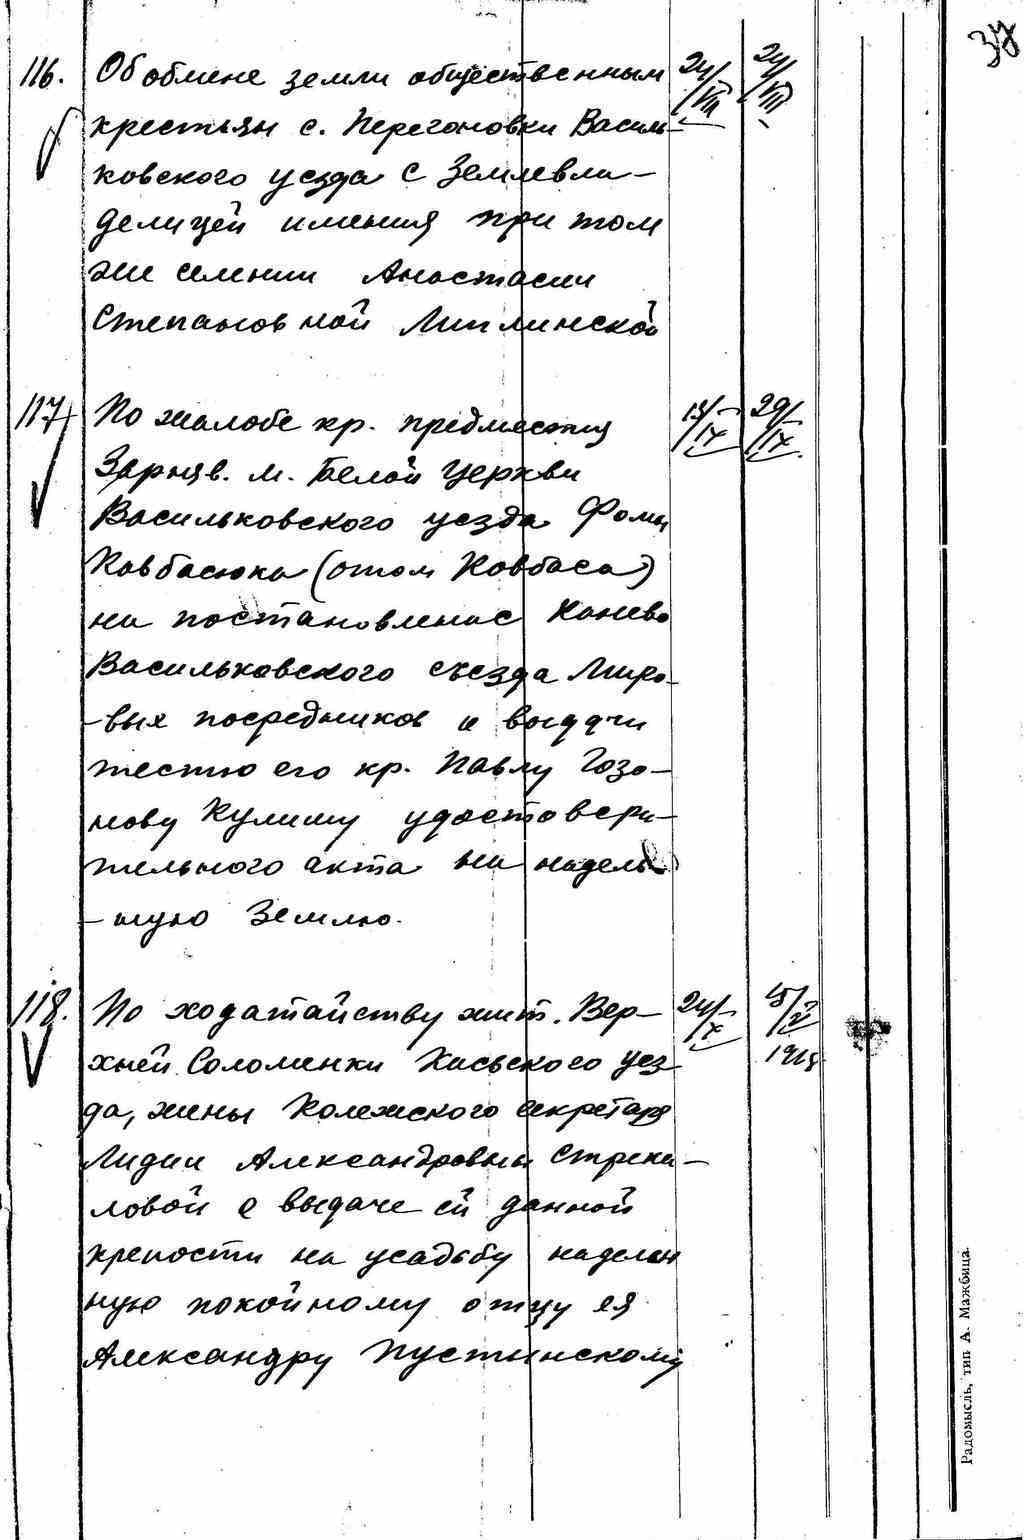 37
116. Об обмене земли общественным 24/VIII 24/VIII
крестьян с. Перегоновки Василь-
ковского уезда с землевла-
делицей имения при том
же селении Анастасии
Степановной Липлинской
117 По жалобе кр. предместия 13/IX 29/IX
Зарыцв. м. Белой Церкви
Васильковского уезда Фомы
Ковбасюка (отом Ковбаса)
на постановление Канево
Васильковского съезда Миро-
-вых посредников о выдачи
тестю его кр. Павлу
Кулишу удостовери-
тельного акта на надель-
-ную землю.
118. По ходатайству жит. Вер- 24/X
хней Соломенки Киевского уез-
да, жены Колежского секретаря
Лидии Александровны Стрека-
ловой о выдаче ей данной
крепости на усадьбу наделен
ную покойному отцу ея
Александру Пустынскому
Радомысль, тип А. Мажбица.